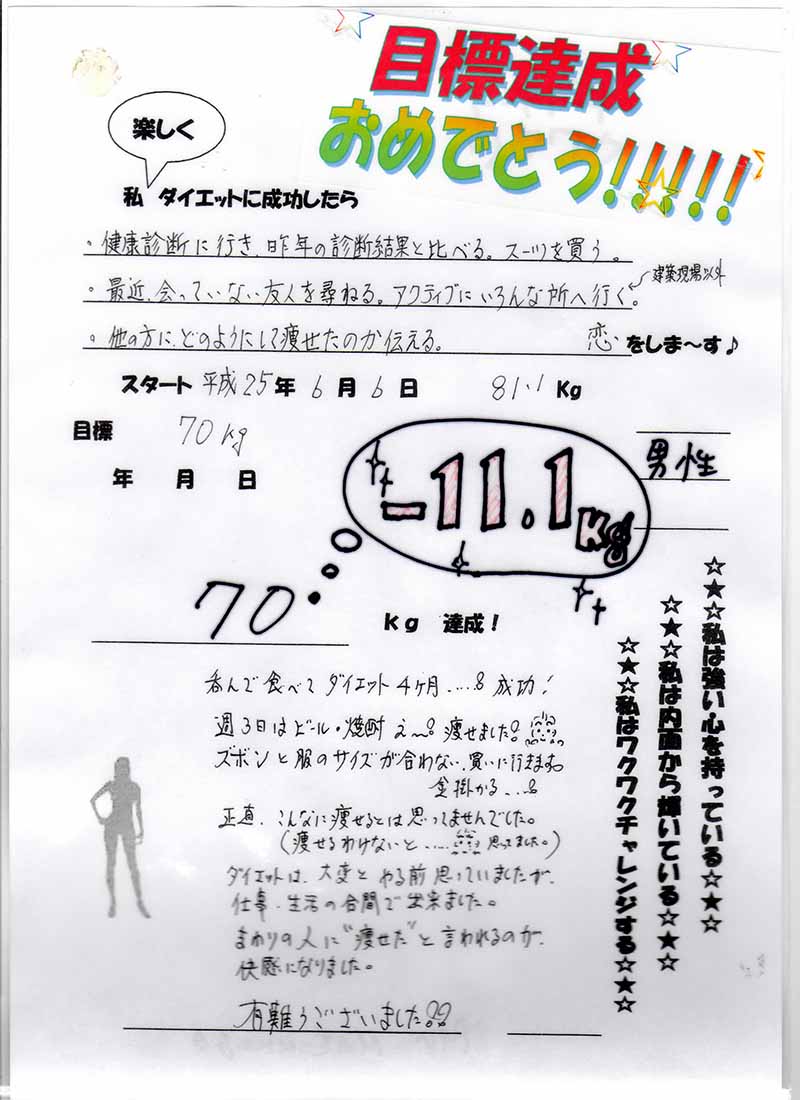 目標達成
おめでとう!!!!!
楽しく
私 ダイエットに成功したら
・健康診断に行き、昨年の診断結果と比べる。スーツを買う。
・最近、会っていない友人を尋ねる。アクティブにいろんな所へ行く。
建築現場以外
・他の方に、どのようにして痩せたのか伝える。 恋をしま〜す♪
スタート 平成25年 6月 6日 81.1 Kg
目標 70kg
年 月 日
男性
-11.1Kg
70 kg 達成!
呑んで食べてダイエット4ヶ月.....成功!
週3日はビール・焼酎 え〜 痩せました
ズボンと服のサイズが合わない、買いに行きます。
金掛かる...
正直、こんなに痩せるとは思ってませんでした。
(痩せるわけないと..... 思ってました。)
ダイエットは、大変とやる前思っていましたが、
仕事・生活の合間で出来ました。
まわりの人に"痩せた"と言われるのが、
快感になりました。
有難うございました!!
☆★☆私は強い心を持っている☆★☆
☆★☆私は内面から輝いている☆★☆
☆★☆私はワクワクチャレンジする☆★☆